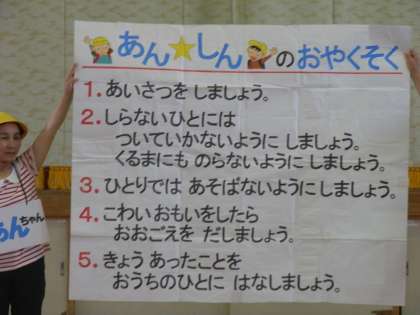 あん☆しん のおやくそく
1. あいさつを しましょう。
2. しらないひとには
ついていかないように しましょう。
くるまにも のらないように しましょう。
3. ひとりでは あそばないように しましょう。
4. こわい おもいをしたら
おおごえを だしましょう。
5. きょう あったことを
おうちのひとに はなしましょう。
んちゃん